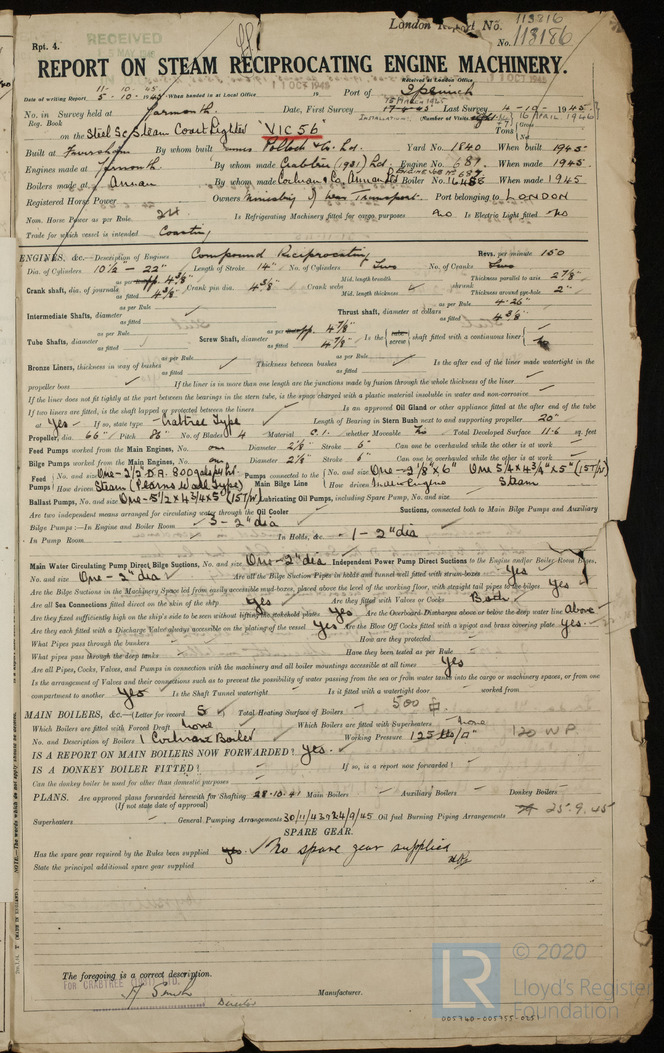 London Report No. 113216
Rpt. 4.
RECEIVED
No. 113186
REPORT ON STEAM RECIPROCATING ENGINE MACHINERY.
Received at London Office
11-10-45
Date of writing Report 5-10-1945 When handed in at Local Office 19 Port of Ipswich
No. in Survey held at Yarmouth Date, First Survey Last Survey 4-10-1945
Reg. Book (Number of Visits 16 APRIL 1946
on the Steel Sc Steam Coast Lighter "VIC 56" Tons Gross Net
Built at Faversham By whom built James Pollock & Co. Ltd. Yard No. 1840 When built 1945
Engines made at Yarmouth By whom made Crabtree (1931) Ltd. Engine No. 687 When made 1945
Boilers made at Annan By whom made Cochran & Co. Annan Ltd Boiler No. 16486 When made 1945
Registered Horse Power Owners Ministry of War Transport Port belonging to LONDON
Nom. Horse Power as per Rule 24 Is Refrigerating Machinery fitted for cargo purposes No Is Electric Light fitted No
Trade for which vessel is intended Coasting
ENGINES, &c.—Description of Engines Compound Reciprocating Revs. per minute 150
Dia. of Cylinders 10½ - 22" Length of Stroke 14" No. of Cylinders Two No. of Cranks Two
Crank shaft, dia. of journals as per Rule 4 3/8" as fitted 4 3/8" Crank pin dia. 4 3/8" Crank webs Mid. length breadth Mid. length thickness shrunk Thickness parallel to axis 2 7/8" Thickness around eye-hole 2"
Intermediate Shafts, diameter as per Rule as fitted Thrust shaft, diameter at collars as per Rule 4.26" as fitted 4 3/8"
Tube Shafts, diameter as per Rule as fitted Screw Shaft, diameter as per Rule 4 7/8" as fitted 4 7/8" Is the tube screw shaft fitted with a continuous liner No
Bronze Liners, thickness in way of bushes as per Rule as fitted Thickness between bushes as per Rule as fitted Is the after end of the liner made watertight in the
propeller boss If the liner is in more than one length are the junctions made by fusion through the whole thickness of the liner
If the liner does not fit tightly at the part between the bearings in the stern tube, is the space charged with a plastic material insoluble in water and non-corrosive
If two liners are fitted, is the shaft lapped or protected between the liners Is an approved Oil Gland or other appliance fitted at the after end of the tube
shaft Yes If so, state type Crabtree Type Length of Bearing in Stern Bush next to and supporting propeller 20"
Propeller, dia. 66" Pitch 86" No. of Blades 4 Material C.I. whether Moveable No Total Developed Surface 11.6 sq. feet
Feed Pumps worked from the Main Engines, No. one Diameter 2 1/8" Stroke 6" Can one be overhauled while the other is at work
Bilge Pumps worked from the Main Engines, No. one Diameter 2 1/8" Stroke 6" Can one be overhauled while the other is at work
Feed Pumps No. and size One - 3½" D.A. 300 gals per hr. How driven Steam (Hearns Wall Type) Pumps connected to the Main Bilge Line No. and size One - 2 1/8" x 6" One 5¼ x 4¾" x 5" (15T/hr) How driven Main Engine Steam
Ballast Pumps, No. and size One - 5½ x 4¾ x 5" (15T/hr) Lubricating Oil Pumps, including Spare Pump, No. and size
Are two independent means arranged for circulating water through the Oil Cooler Suctions, connected both to Main Bilge Pumps and Auxiliary
Bilge Pumps :—In Engine and Boiler Room 3 - 2" dia
In Pump Room In Holds, &c. 1 - 2" dia
Main Water Circulating Pump Direct Bilge Suctions, No. and size One - 2" dia. Independent Power Pump Direct Suctions to the Engine and/or Boiler Room Bilges,
No. and size One - 2" dia Are all the Bilge Suction Pipes in holds and tunnel well fitted with strum-boxes Yes
Are the Bilge Suctions in the Machinery Space led from easily accessible mud-boxes, placed above the level of the working floor, with straight tail pipes to the bilges Yes
Are all Sea Connections fitted direct on the skin of the ship Yes Are they fitted with Valves or Cocks Both
Are they fixed sufficiently high on the ship's side to be seen without lifting the stokehold plates Yes Are the Overboard Discharges above or below the deep water line Above
Are they each fitted with a Discharge Valve always accessible on the plating of the vessel Yes Are the Blow Off Cocks fitted with a spigot and brass covering plate Yes.
What Pipes pass through the bunkers How are they protected
What pipes pass through the deep tanks Have they been tested as per Rule
Are all Pipes, Cocks, Valves, and Pumps in connection with the machinery and all boiler mountings accessible at all times Yes
Is the arrangement of Valves and their connections such as to prevent the possibility of water passing from the sea or from water tanks into the cargo or machinery spaces, or from one
compartment to another Yes Is the Shaft Tunnel watertight Is it fitted with a watertight door worked from
MAIN BOILERS, &c.—(Letter for record S) Total Heating Surface of Boilers 500
Which Boilers are fitted with Forced Draft None Which Boilers are fitted with Superheaters None
No. and Description of Boilers 1 Cochrane Boiler Working Pressure 125 lbs/□" 120 W.P.
IS A REPORT ON MAIN BOILERS NOW FORWARDED? Yes.
IS A DONKEY BOILER FITTED? If so, is a report now forwarded?
Can the donkey boiler be used for other than domestic purposes
PLANS. Are approved plans forwarded herewith for Shafting 28.10.41 Main Boilers Auxiliary Boilers Donkey Boilers
(If not state date of approval) 25.9.45
Superheaters General Pumping Arrangements 30/11/43 & 24/9/45 Oil fuel Burning Piping Arrangements
SPARE GEAR.
Has the spare gear required by the Rules been supplied yes. No spare gear supplied
State the principal additional spare gear supplied
The foregoing is a correct description.
FOR CRABTREE (1931) LTD.
Director
Manufacturer.
LR
© 2020
Lloyd's Register
Foundation
005760-005755-0051